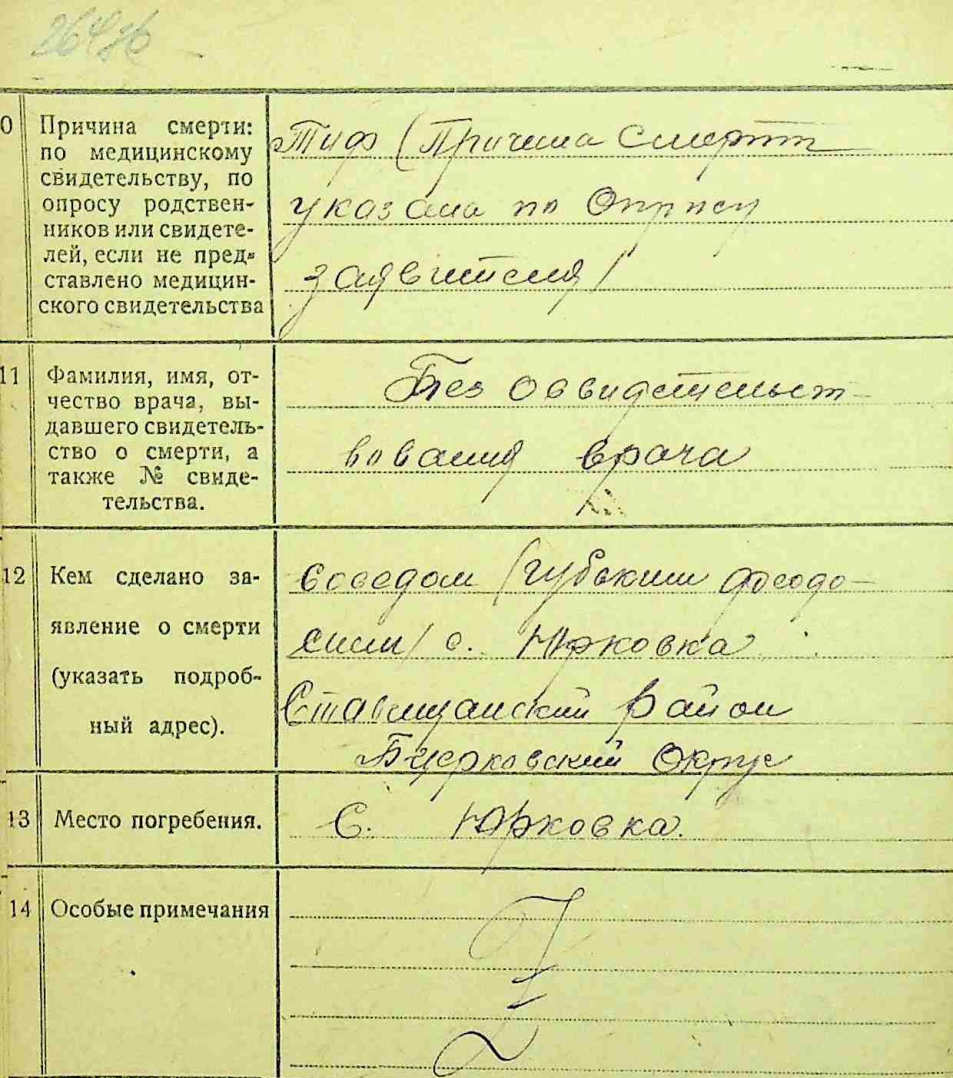 0 Причина смерти:
по медицинскому
свидетельству, по
опросу родствен-
ников или свидете-
лей, если не пред-
ставлено медицин-
ского свидетельства
Тиф (Причина Смерти
указана по Опросу
заявителя/
11 Фамилия, имя, от-
чество врача, вы-
давшего свидетель-
ство о смерти, а
также № свиде-
тельства.
Без освидетельст-
вования врача
12 Кем сделано за-
явление о смерти
(указать подроб-
ный адрес).
Соседом (Губским Феодо-
сием/ с. Юрковка
Ставищанский Район
Бцерковский Округ
13 Место погребения.
С. Юрковка.
14 Особые примечания